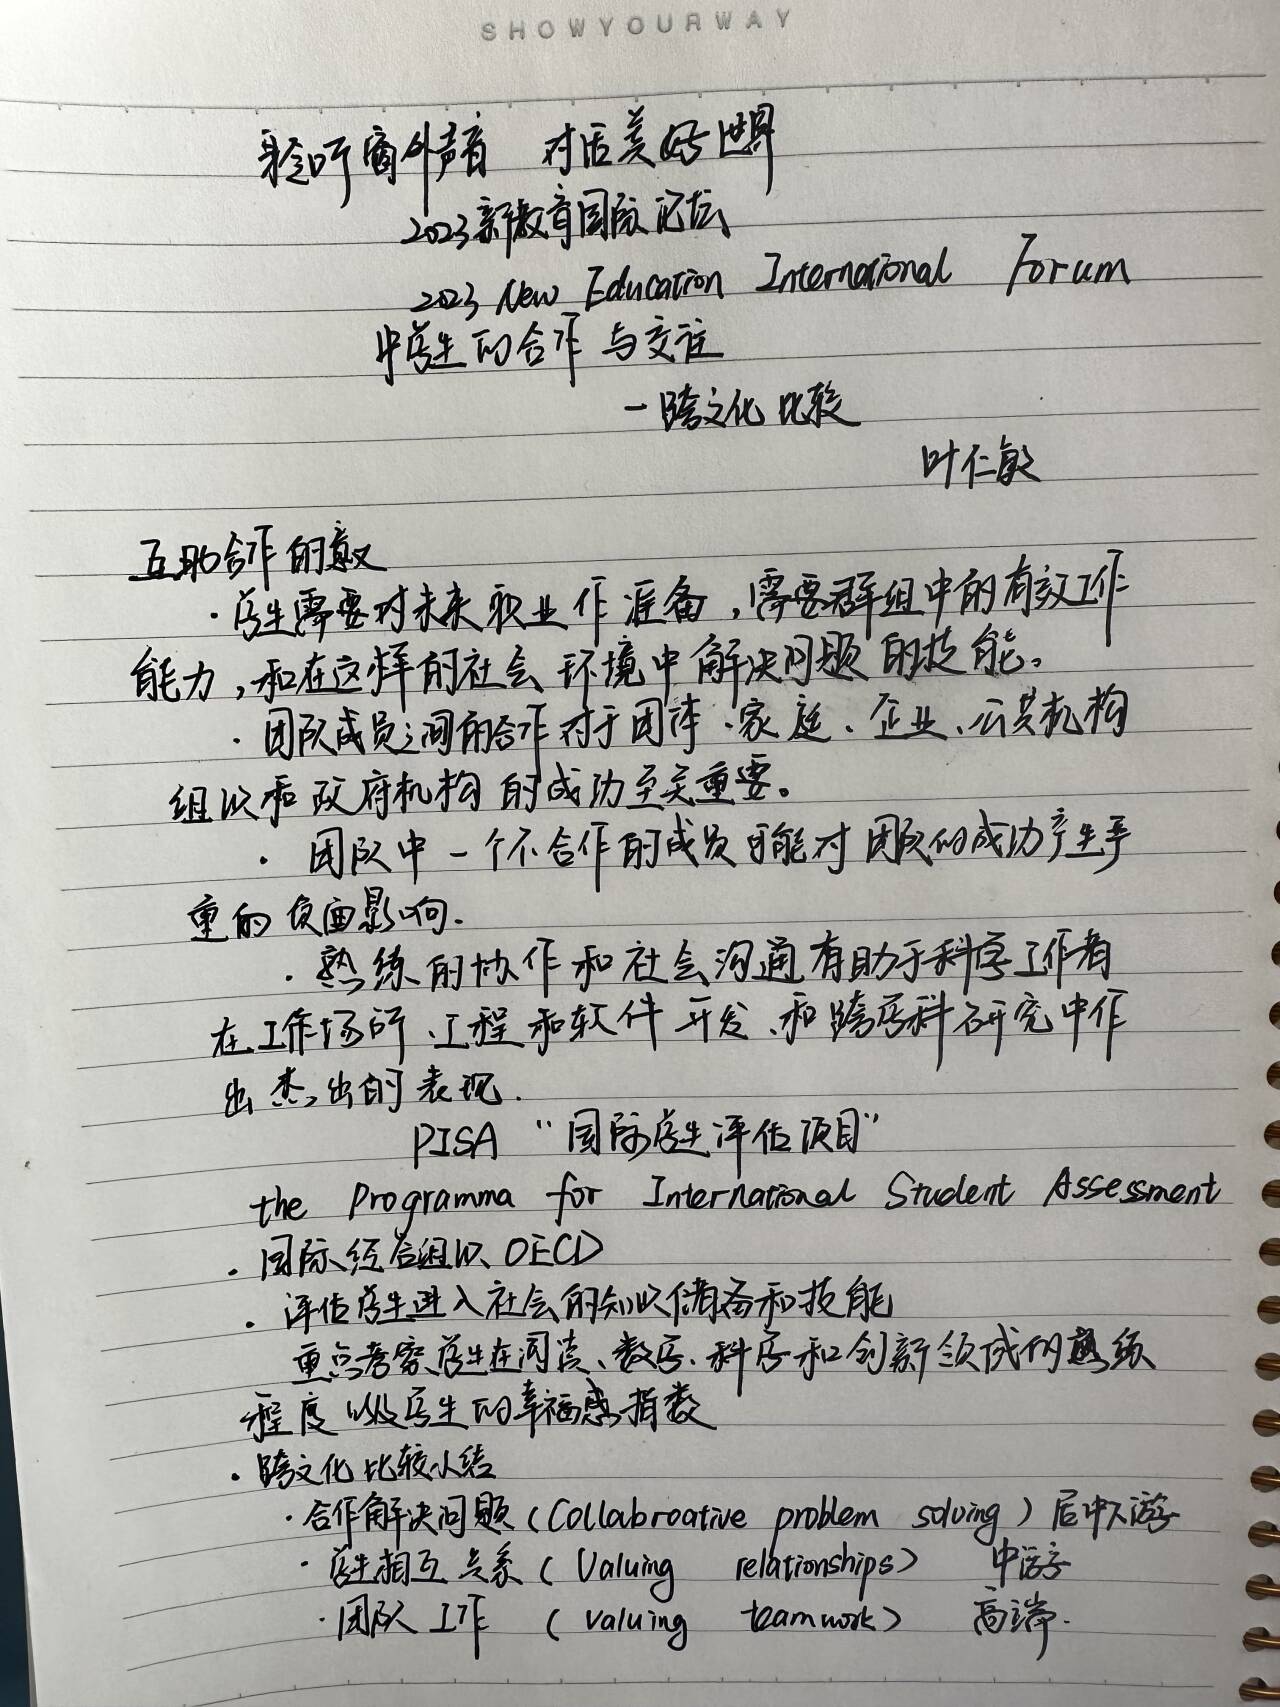 SHOWYOURWAY
聆听窗外声音 对话美好世界
2023新教育国际论坛
2023 New Education International Forum
中学生的合作与交往
一跨文化比较
叶仁敏
互助合作的意义
·学生需要对未来职业作准备,需要群组中的有效工作
能力,和在这样的社会环境中解决问题的技能。
·团队成员之间的合作对于团体、家庭、企业、公共机构
组织和政府机构的成功至关重要。
·团队中一个不合作的成员可能对团队的成功产生严
重的负面影响.
·熟练的协作和社会沟通有助于科学工作者
在工作场所、工程和软件开发、和跨学科研究中作
出杰出的表现.
PISA “国际学生评估项目”
the Programma for International Student Assessment
·国际经合组织OECD
·评估学生进入社会的知识储备和技能
重点考察学生在阅读、数学、科学和创新领域的熟练
程度以及学生的幸福感指数
·跨文化比较小结
·合作解决问题(Collabroative problem solving)居中下游
·学生相互关系(Valuing relationships) 中游
·团队工作 (valuing teamwork) 高端.